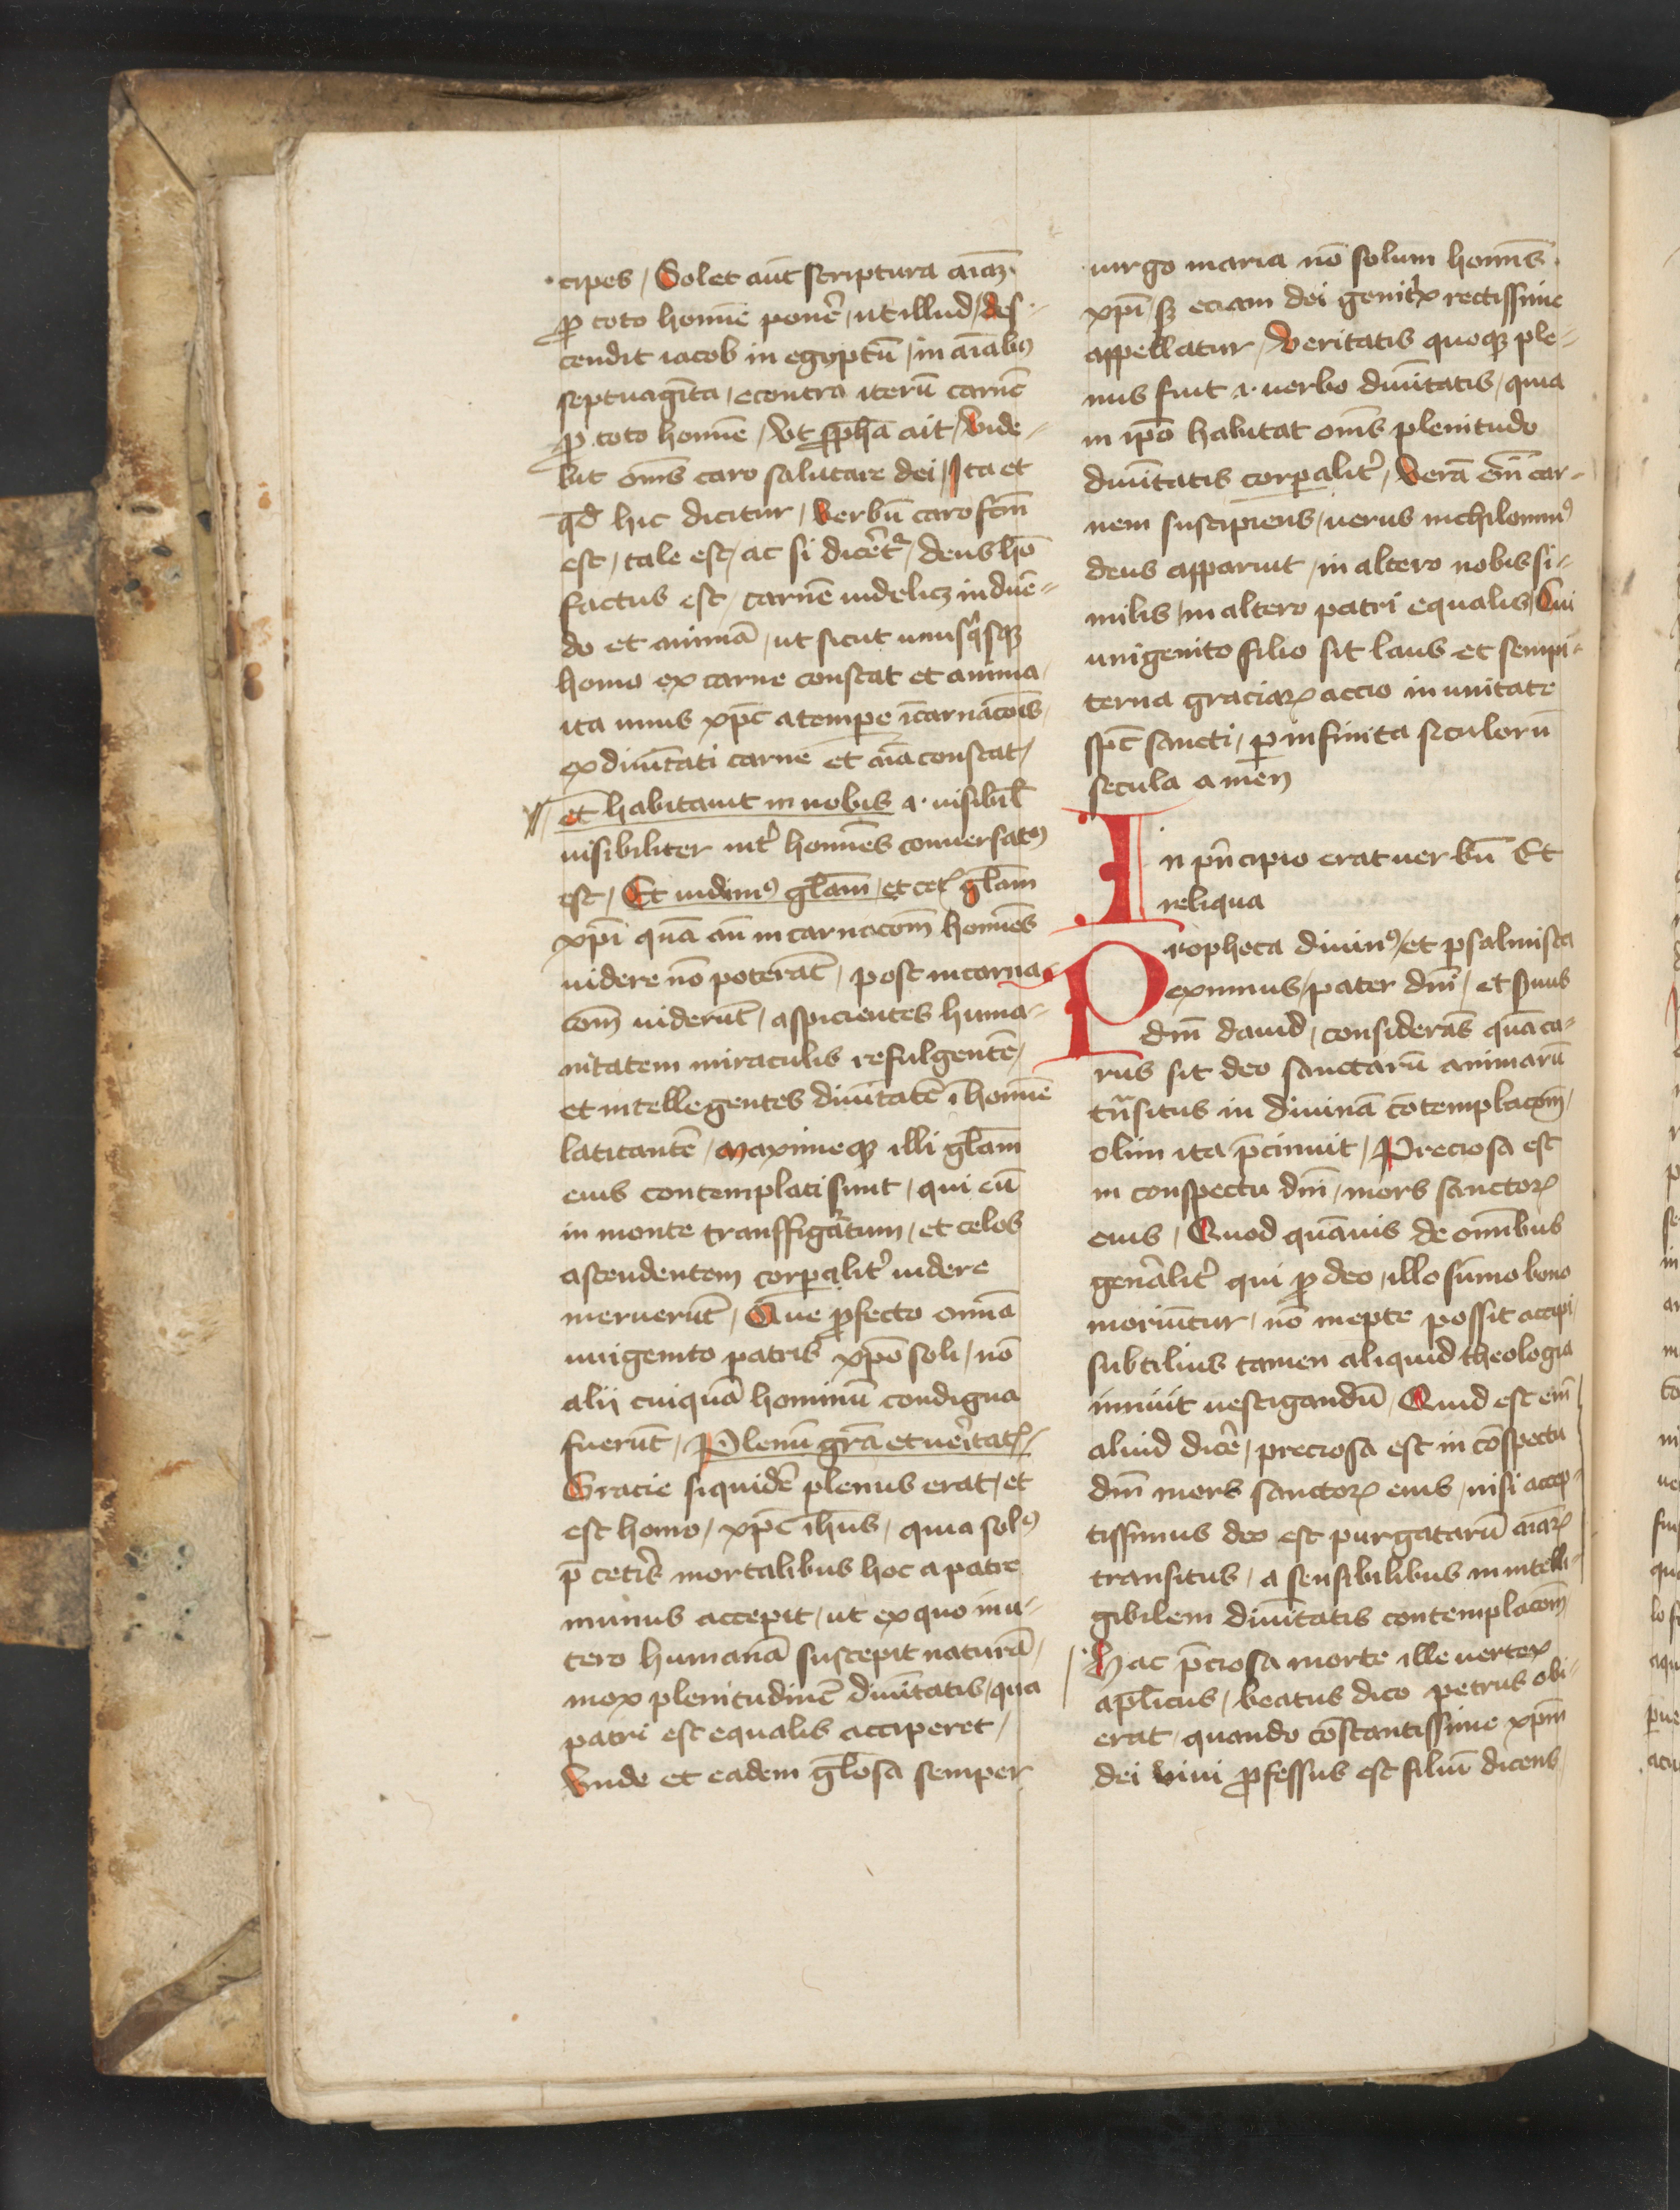 cipes / Solet aut̄ scriptura aīaꝫ
ꝓ toto homīe ponē / ut illud / des-
cendit iacob in egyptū / in aīabꝰ
septuagīta / econtra iterū carnē
ꝓ toto homīe / Vt ꝓph̄a ait / Vide-
bit om̄s caro salutare dei / Ita et
qd̄ hic dicitur / Verbū caro fc̄m
est / tale est / ac si dicēt᷑ / deus hō
factus est / carnē uidelicꝫ induē-
do et animā / ut sicut unusq̇sqꝫ
homo ex carne constat et anima /
ita unus xp̄c a tempe īcarnac̄ois /
ex diuītati carne et aīa constat /
et habitauit in nobis .i. uisibil̄
uisibiliter int̄ homīes conuersatꝰ
est / Et uidimꝰ gl̄am / et cetꝭ gl̄am
xp̄i quā an̄ incarnacōm homīes
uidere nō poterāt / post incarna
cōm uiderūt / aspicientes huma-
nitatem miraculis refulgentē /
et intellegentes diuītatē ī homīe
latitantē / Maximeqꝫ illi gl̄am
eius contemplati sunt / qui eū
in monte transffigāatum / et celos
ascendentem corꝑalit̄ uidere
meruerūt / Que ꝓfecto omīa
unigenito patris xp̄o soli / nō
alij cuiquā hominū condigna
fuerūt / Plenū grā et ueritatꝭ /
Gracie siquidē plenus erat / et
est homo / xp̄c ih̄us / quia solꝰ
p̄ cetīs mortalibus hoc a patre
munus accepit / ut ex quo in u-
tero humanā suscepit naturā /
mox plenitudinē diuītatis / qua
patri est equalis acciperet /
Vnde et eadem gl̄osa semper
uirgo maria nō solum homīs
xp̄i / sꝫ eciam dei genitͥx rectissime
appellatur / Veritatis quoqꝫ ple-
nus fuit .i. uerbo diuītatis / quia
in ip̄o habitat om̄s plenitudo
diuītatis corꝑalit̄ / Verā em̄ car-
nem suscipiens / uerus nichilominꝰ
deus apparuit / in altero nobis si-
milis / in altero patri equalis / Cui
unigenito filio sit laus et sempi-
terna graciaꝝ accio in unitate
sp̄c sancti / ꝑ infinita seculorū
secula amen
In pn̄cipio erat uerbū Et
reliqua
Propheta diuinꝰ / et psalmista
eximius / pater dn̄i / et seruus
dn̄i dauid / considerās quā ca-
rus sit deo sanctarū animarū
tn̄situs in diuinā cōtemplacōm /
olim ita p̄cinuit / Preciosa est
in conspectu dn̄i / mors sanctoꝝ
eius / Quod quāuis de omībus
genālit̄ qui ꝓ deo / illo sūmo bono
moriūtur / nō inepte possit accipi /
subtilius tamen aliquid theologia
innuit uestigandū / Quid est em̄
aliud dicē / preciosa est in cōspectu
dn̄i mors sanctoꝝ eius / nisi accep-
tissimus deo est purgatarū aīaꝝ
transitus / a sensibilibus in intelli-
gibilem diuītatis contemplacōm /
Hac p̄ciosa morte ille uertex
apl̄icus / beatus dico petrus obi-
erat / quando cōstantissime xp̄m
dei uiui ꝓfessus est filiū dicens